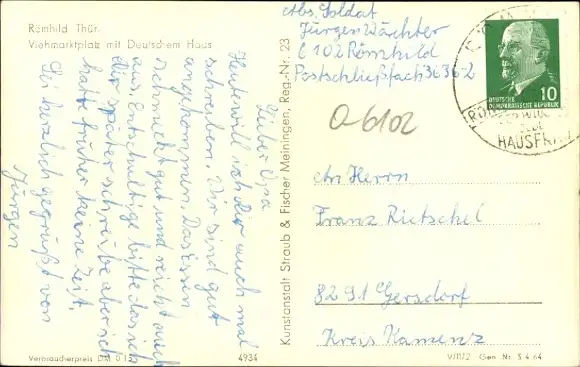 Römhild Thür.
Viehmarktplatz mit Deutschem Haus
Lieber Opa
Heute will ich dir auch mal
schreiben. Wir sind gut
angekommen. Das Essen
schmeckt gut und reicht auch
aus. Entschultige bitte das ich
dir später schreibe aber ich
hatte früher keine Zeit.
Sei herzlich gegrüßt von
Jürgen
Verbraucherpreis DM 0.15
4934
Kunstanstalt Straub & Fischer Meiningen, Reg.-Nr. 23
Abs. Soldat
Jürgen Wächter
6102 Römhild
Postschließfach 3636-2
10
DEUTSCHE
DEMOKRATISCHE REPUBLIK
HAUSFR
O-6102
An Herrn
Franz Rietschel
8291 Gersdorf
Kreis Kamenz
V/11/2 Gen. Nr. S 4 64